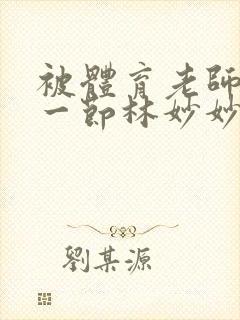 被體育老師
一節林妙妙
劉某源